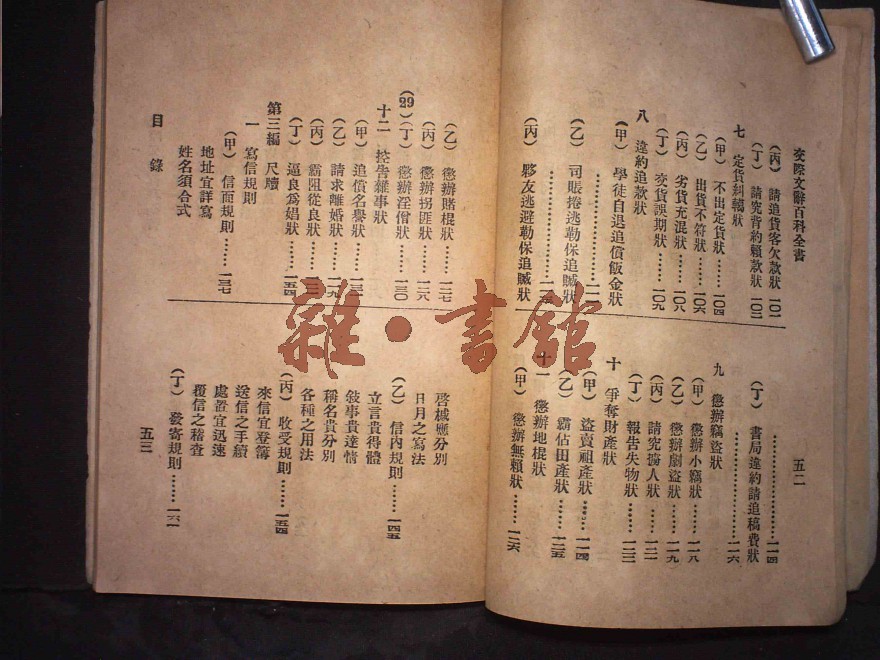 交際文辭百科全書
五二
(丙) 請追貨客欠款狀 一〇一
(丁) 請究背約賴款狀 一〇二
七 定貨糾轕狀
(甲) 不出定貨狀……一〇四
(乙) 出貨不符狀……一〇六
(丙) 劣貨充混狀……一〇八
(丁) 交貨誤期狀……一〇九
八 違約追款狀
(甲) 學徒自退追償飯金狀
(乙) 司賬捲逃勒保追贓狀
(丙) 夥友逃避勒保追贓狀
……一一四
(丁) 書局違約請追稿費狀
……一一六
九 懲辦竊盜狀
(甲) 懲辦小竊狀……一一八
(乙) 懲辦劇盜狀……一一九
(丙) 請究擄人狀……一二一
(丁) 報告失物狀……一二三
十 爭奪財產狀
(甲) 盜賣祖產狀……一二四
(乙) 霸佔田產狀……一二五
十一 懲辦地棍狀
(甲) 懲辦無賴狀……一二六
(乙) 懲辦賭棍狀……一二七
(丙) 懲辦拐匪狀……一二八
(29)
(丁) 懲辦淫僧狀……一三〇
十二 控告雜事狀
(甲) 追償名譽狀
(乙) 請求離婚狀
(丙) 霸阻從良狀
(丁) 逼良爲娼狀……一五四
第三編 尺牘
一 寫信規則
(甲) 信面規則……一三七
地址宜詳寫
姓名須合式
目錄
啓椷應分別
日月之寫法
(乙) 信內規則……一四五
立言貴得體
敍事貴達情
稱名貴分別
各種之用法
(丙) 收受規則……一五四
來信宜登簿
送信之手續
處置宜迅速
覆信之稽查
(丁) 發寄規則……一六一
五三
雜·書館